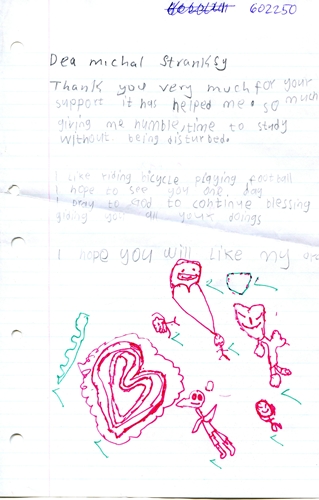 602250
Dea michal Stranksy
Thank you very much for your
support it has helped me. so much
giving me humble, time to study
without being disturbed.
I like riding bicycle playing football
I hope to see you one. day
I pray to God to continue blessing
giving you all your doings
I hope you will like my